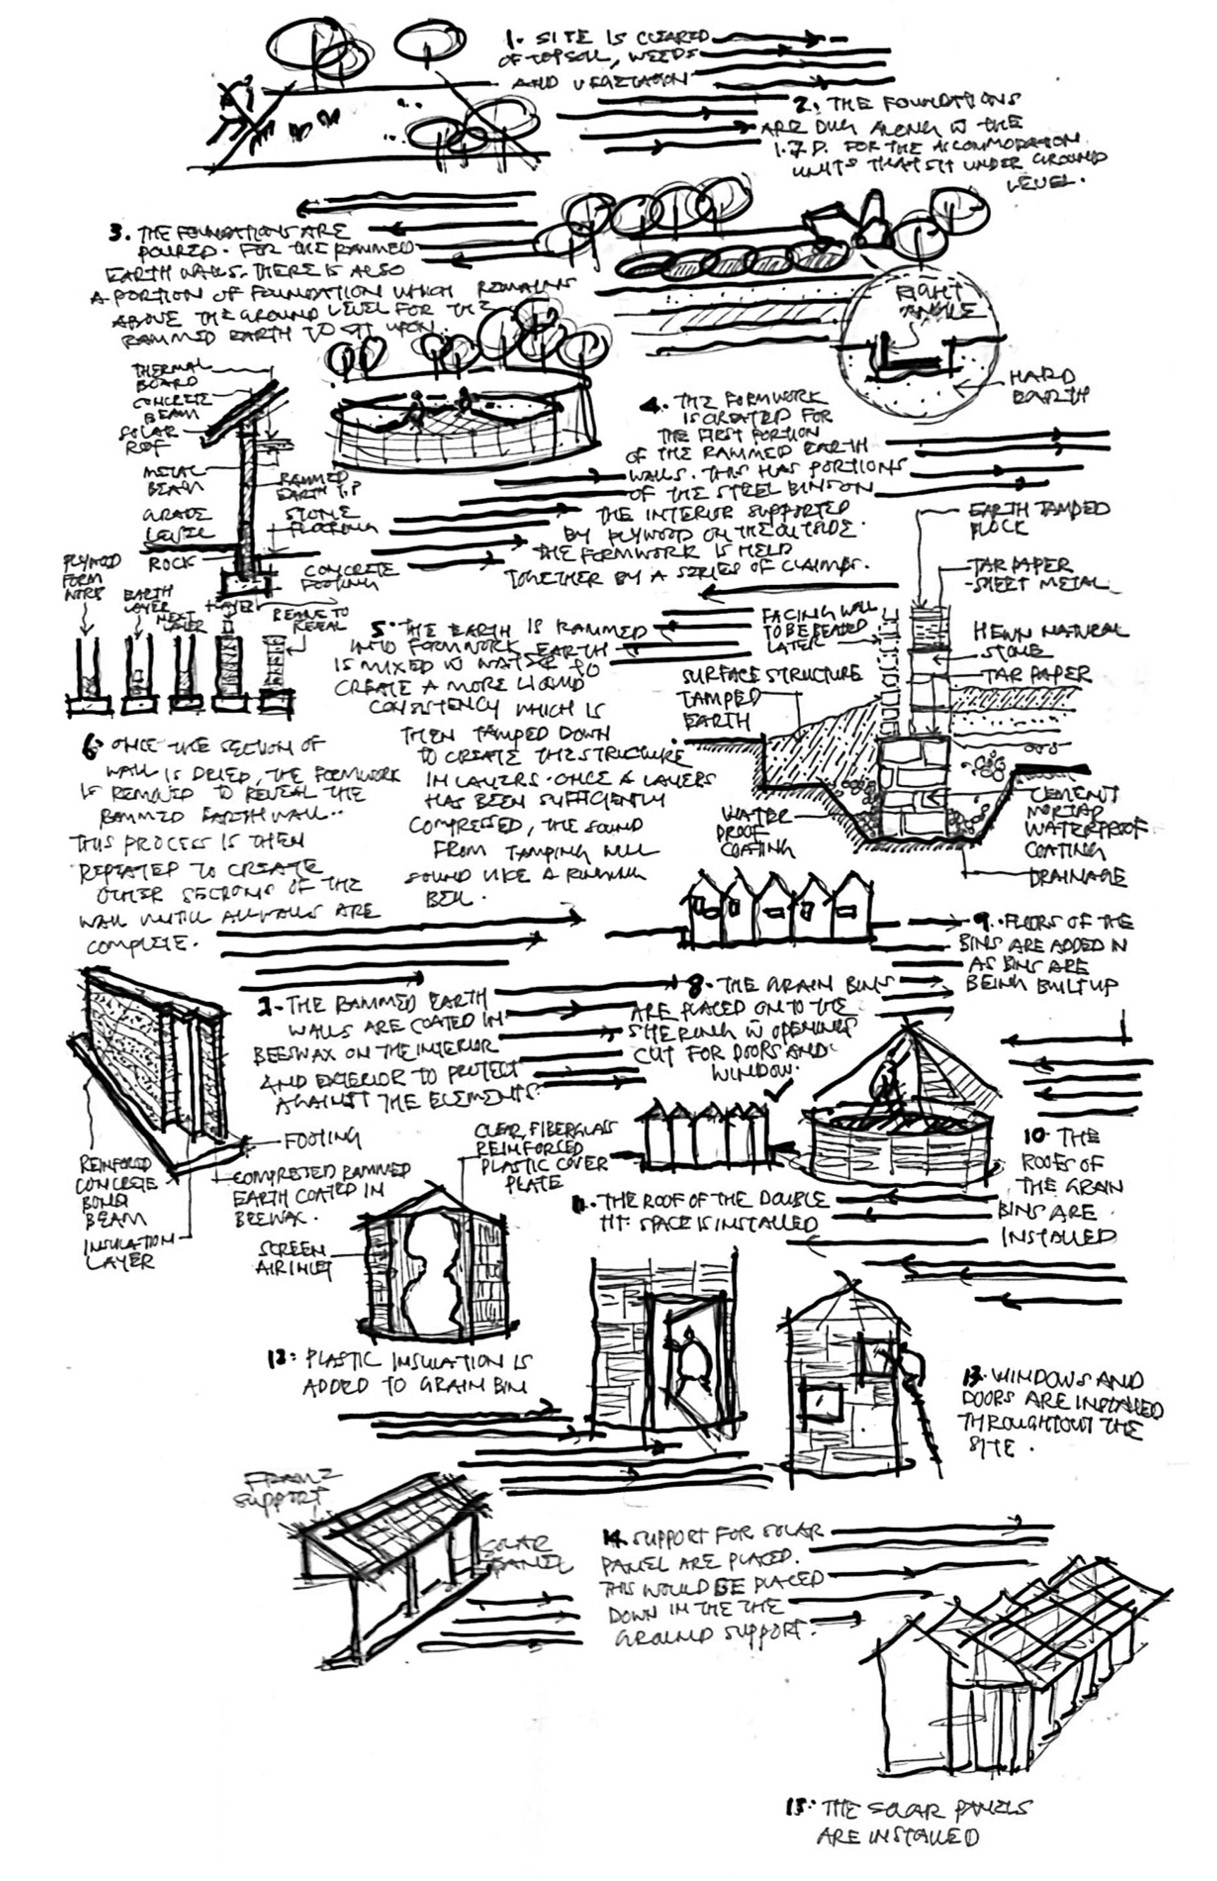 1. SITE IS CLEARED
OF TOPSOIL, WEEDS
AND VEGETATION
2. THE FOUNDATIONS
ARE DUG ALONG W THE
FOR THE ACCOMMODATION
UNITS THAT SIT UNDER GROUND
LEVEL.
3. THE FOUNDATIONS ARE
POURED. FOR THE RAMMED
EARTH WALLS. THERE IS ALSO
A PORTION OF FOUNDATION WHICH REMAINS
ABOVE THE GROUND LEVEL FOR THE
RAMMED EARTH TO SIT UPON.
RIGHT
ANGLE
HARD
EARTH
THERMAL
BOARD
CONCRETE
BEAM
SOLAR
ROOF
METAL
BEAM
GRADE
LEVEL
ROCK
RAMMED
EARTH
STONE
FLOORING
CONCRETE
FOOTING
4. THE FORMWORK
IS CREATED FOR
THE FIRST PORTION
OF THE RAMMED EARTH
WALLS. THIS HAS PORTIONS
OF THE STEEL BINS ON
THE INTERIOR SUPPORTED
BY PLYWOOD ON THE OUTSIDE.
THE FORMWORK IS HELD
TOGETHER BY A SERIES OF CLAMPS.
PLYWOOD
FORM
EARTH
LAYER
NEXT
LAYER
REVEAL
5. THE EARTH IS RAMMED
INTO FORMWORK EARTH
IS MIXED W WATER TO
CREATE A MORE LIQUID
CONSISTENCY WHICH IS
THEN TAMPED DOWN
TO CREATE THE STRUCTURE
IN LAYERS. ONCE A LAYERS
HAS BEEN SUFFICIENTLY
COMPRESSED, THE SOUND
FROM TAMPING WILL
SOUND LIKE A RINGING
BELL.
EARTH TAMPED
TAR PAPER
SHEET METAL
FACING WALL
TO BE
LATER
HEWN NATURAL
STONE
TAR PAPER
SURFACE STRUCTURE
TAMPED
EARTH
WATER
PROOF
COATING
CEMENT
MORTAR
WATERPROOF
COATING
DRAINAGE
6. ONCE THE SECTION OF
WALL IS DRIED, THE FORMWORK
IS REMOVED TO REVEAL THE
RAMMED EARTH WALL.
THIS PROCESS IS THEN
REPEATED TO CREATE
OTHER SECTIONS OF THE
WALL UNTIL ALL WALLS ARE
COMPLETE.
7. THE RAMMED EARTH
WALLS ARE COATED IN
BEESWAX ON THE INTERIOR
AND EXTERIOR TO PROTECT
AGAINST THE ELEMENTS.
8. THE GRAIN BINS
ARE PLACED ON TO THE
SITE W OPENINGS
CUT FOR DOORS AND
WINDOW.
9. FLOORS OF THE
BINS ARE ADDED IN
AS BINS ARE
BEING BUILT UP
FOOTING
REINFORCED
CONCRETE
BOND
BEAM
INSULATION
LAYER
COMPRESSED RAMMED
EARTH COATED IN
BEEWAX.
CLEAR FIBERGLASS
REINFORCED
PLASTIC COVER
PLATE
SCREEN
AIR INLET
10. THE
ROOFS OF
THE GRAIN
BINS ARE
INSTALLED
11. THE ROOF OF THE DOUBLE
HT. SPACE IS INSTALLED
12. PLASTIC INSULATION IS
ADDED TO GRAIN BIN
13. WINDOWS AND
DOORS ARE INSTALLED
THROUGHTOUT THE
SITE.
FRAME
SUPPORT
SOLAR
PANEL
14. SUPPORT FOR SOLAR
PANEL ARE PLACED.
THIS WOULD BE PLACED
DOWN IN THE THE
GROUND SUPPORT.
15. THE SOLAR PANELS
ARE INSTALLED